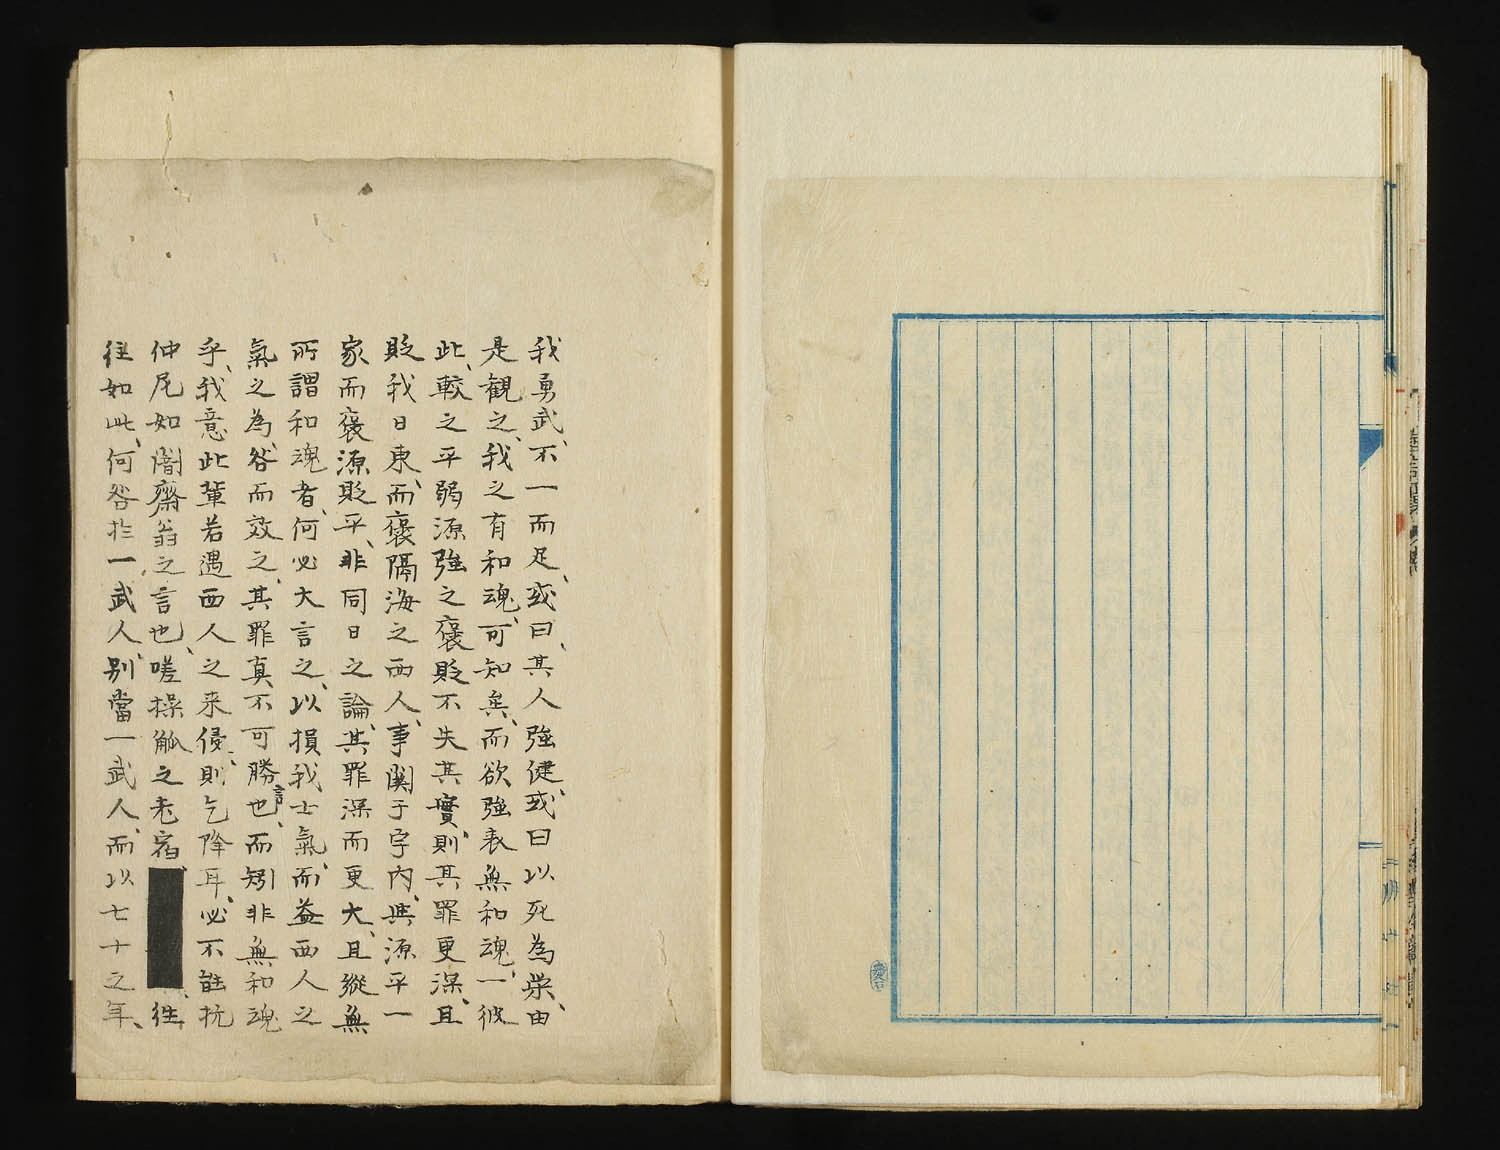 我勇武、不一而足、或曰、其人強健、或曰以死為榮、由
是觀之、我之有和魂、可知矣、而欲強表無和魂、一彼
此、較之平弱源強之褒貶不失其實、則其罪更深、且
貶我日東、而褒隔海之西人、事関于宇内、與源平一
家而褒源貶平、非同日之論、其罪深而更大、且縱無
所謂和魂者、何必大言之、以損我士氣、而益西人之
氣之為、咎而效之、其罪真不可勝言也、而矧非無和魂
乎、我意此輩若遇西人之来侵、則乞降耳、必不能抗
仲尾如闇齋翁之言也、嗟操觚之老宿、往
往如此、何咎於一武人、別當一武人、而以七十之年、